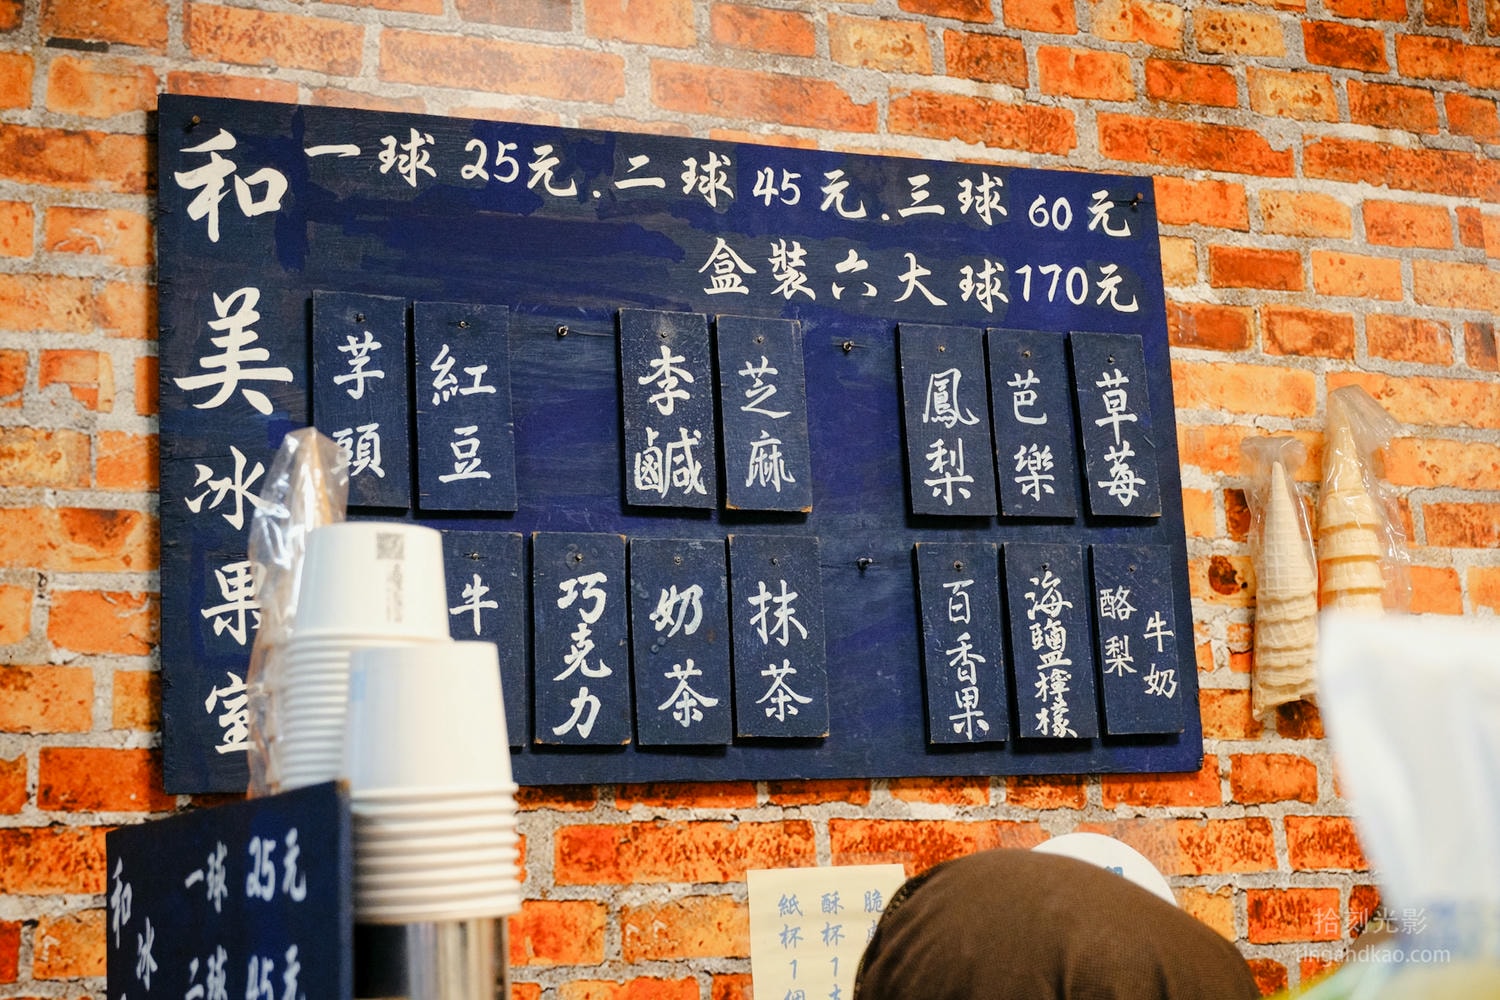 和美冰果室
一球25元.二球45元.三球60元
盒裝六大球170元
芋頭
紅豆
李鹹
芝麻
鳳梨
芭樂
草莓
牛
巧克力
奶茶
抹茶
百香果
海鹽檸檬
酪梨牛奶
和冰
一球25元
二球45元
紙杯1個
酥杯1
脆
拾刻光影
tingandkao.com